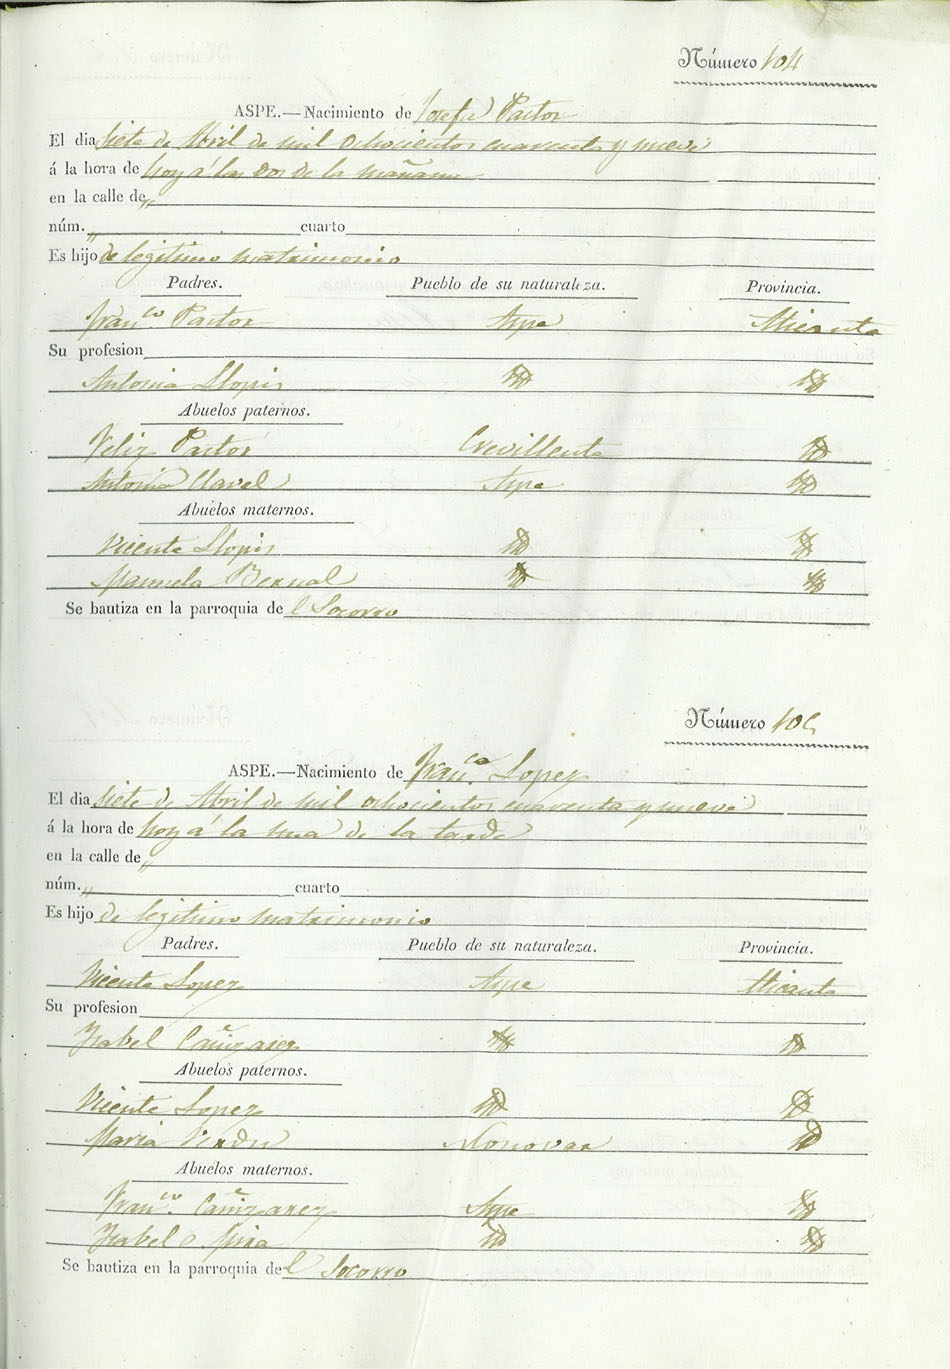 Número 104
ASPE.—Nacimiento de Josefa Pastor
El dia siete de Abril de mil ochocientos cuarenta y nueve
á la hora de hoy á las dos de la mañana
en la calle de „
núm. „ cuarto
Es hijo de legitimo matrimonio
Padres. Pueblo de su naturaleza. Provincia.
Fran.co Pastor Aspe Alicante
Su profesion
Antonia Llopis Id Id
Abuelos paternos.
Felix Pastor Crevillente Id
Antonia Clavel Aspe Id
Abuelos maternos.
Vicente Llopis Id Id
Manuela Bernal Id Id
Se bautiza en la parroquia de l Socorro
Número 105
ASPE.—Nacimiento de Fran.ca Lopez
El dia siete de Abril de mil ochocientos cuarenta y nueve
á la hora de hoy á la una de la tarde
en la calle de „
núm. „ cuarto
Es hijo de legitimo matrimonio
Padres. Pueblo de su naturaleza. Provincia.
Vicente Lopez Aspe Alicante
Su profesion
Isabel Cañizarez Id Id
Abuelos paternos.
Vicente Lopez Id Id
Maria Verdu Monovar Id
Abuelos maternos.
Fran.co Cañizarez Aspe Id
Isabel Mira Id Id
Se bautiza en la parroquia del Socorro